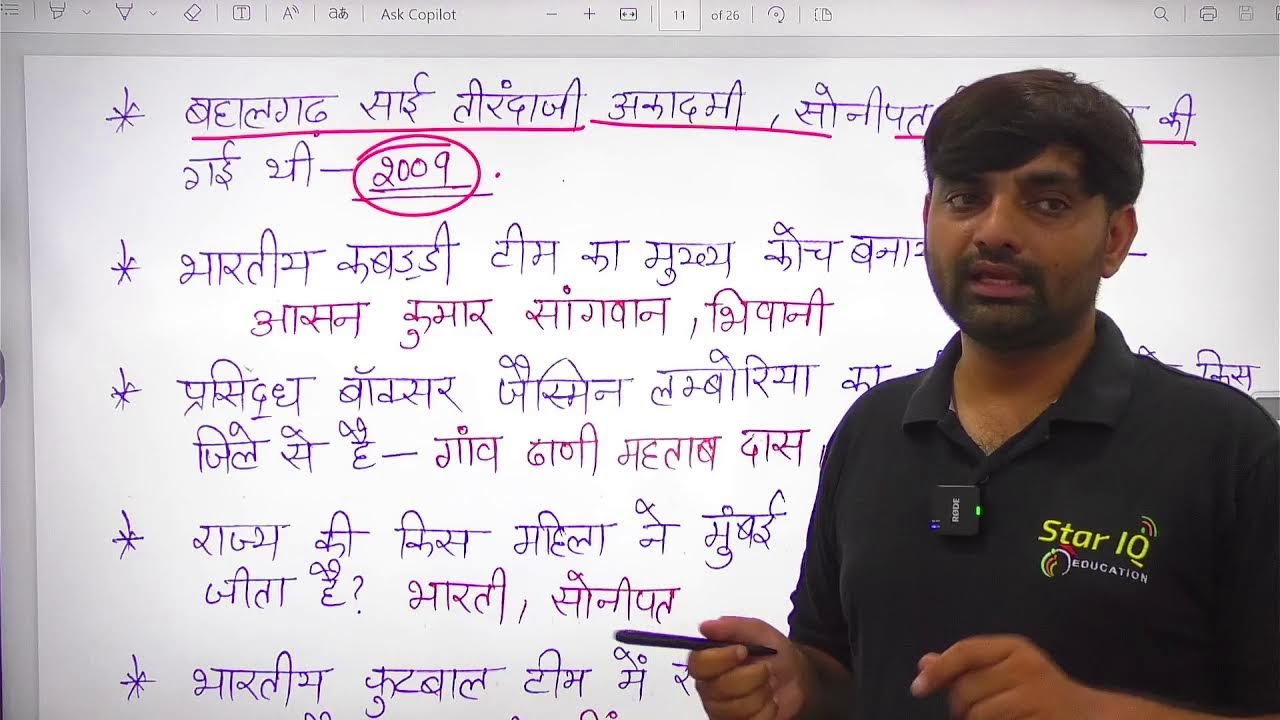 Ask Copilot
11 of 26
* बहालगढ साई तीरंदाजी अकादमी , सोनीपत की
गई थी- २००१ .
* भारतीय कबड्डी टीम का मुख्य कोच -
आसन कुमार सांगवान , भिवानी
* प्रसिद्ध बॉक्सर जैस्मिन लम्बोरिया का किस
जिले से है- गांव ढाणी महताब दास ,
* राज्य की किस महिला ने मुंबई
जीता है? भारती, सोनीपत
* भारतीय फुटबाल टीम में
RØDE
Star IQ
EDUCATION